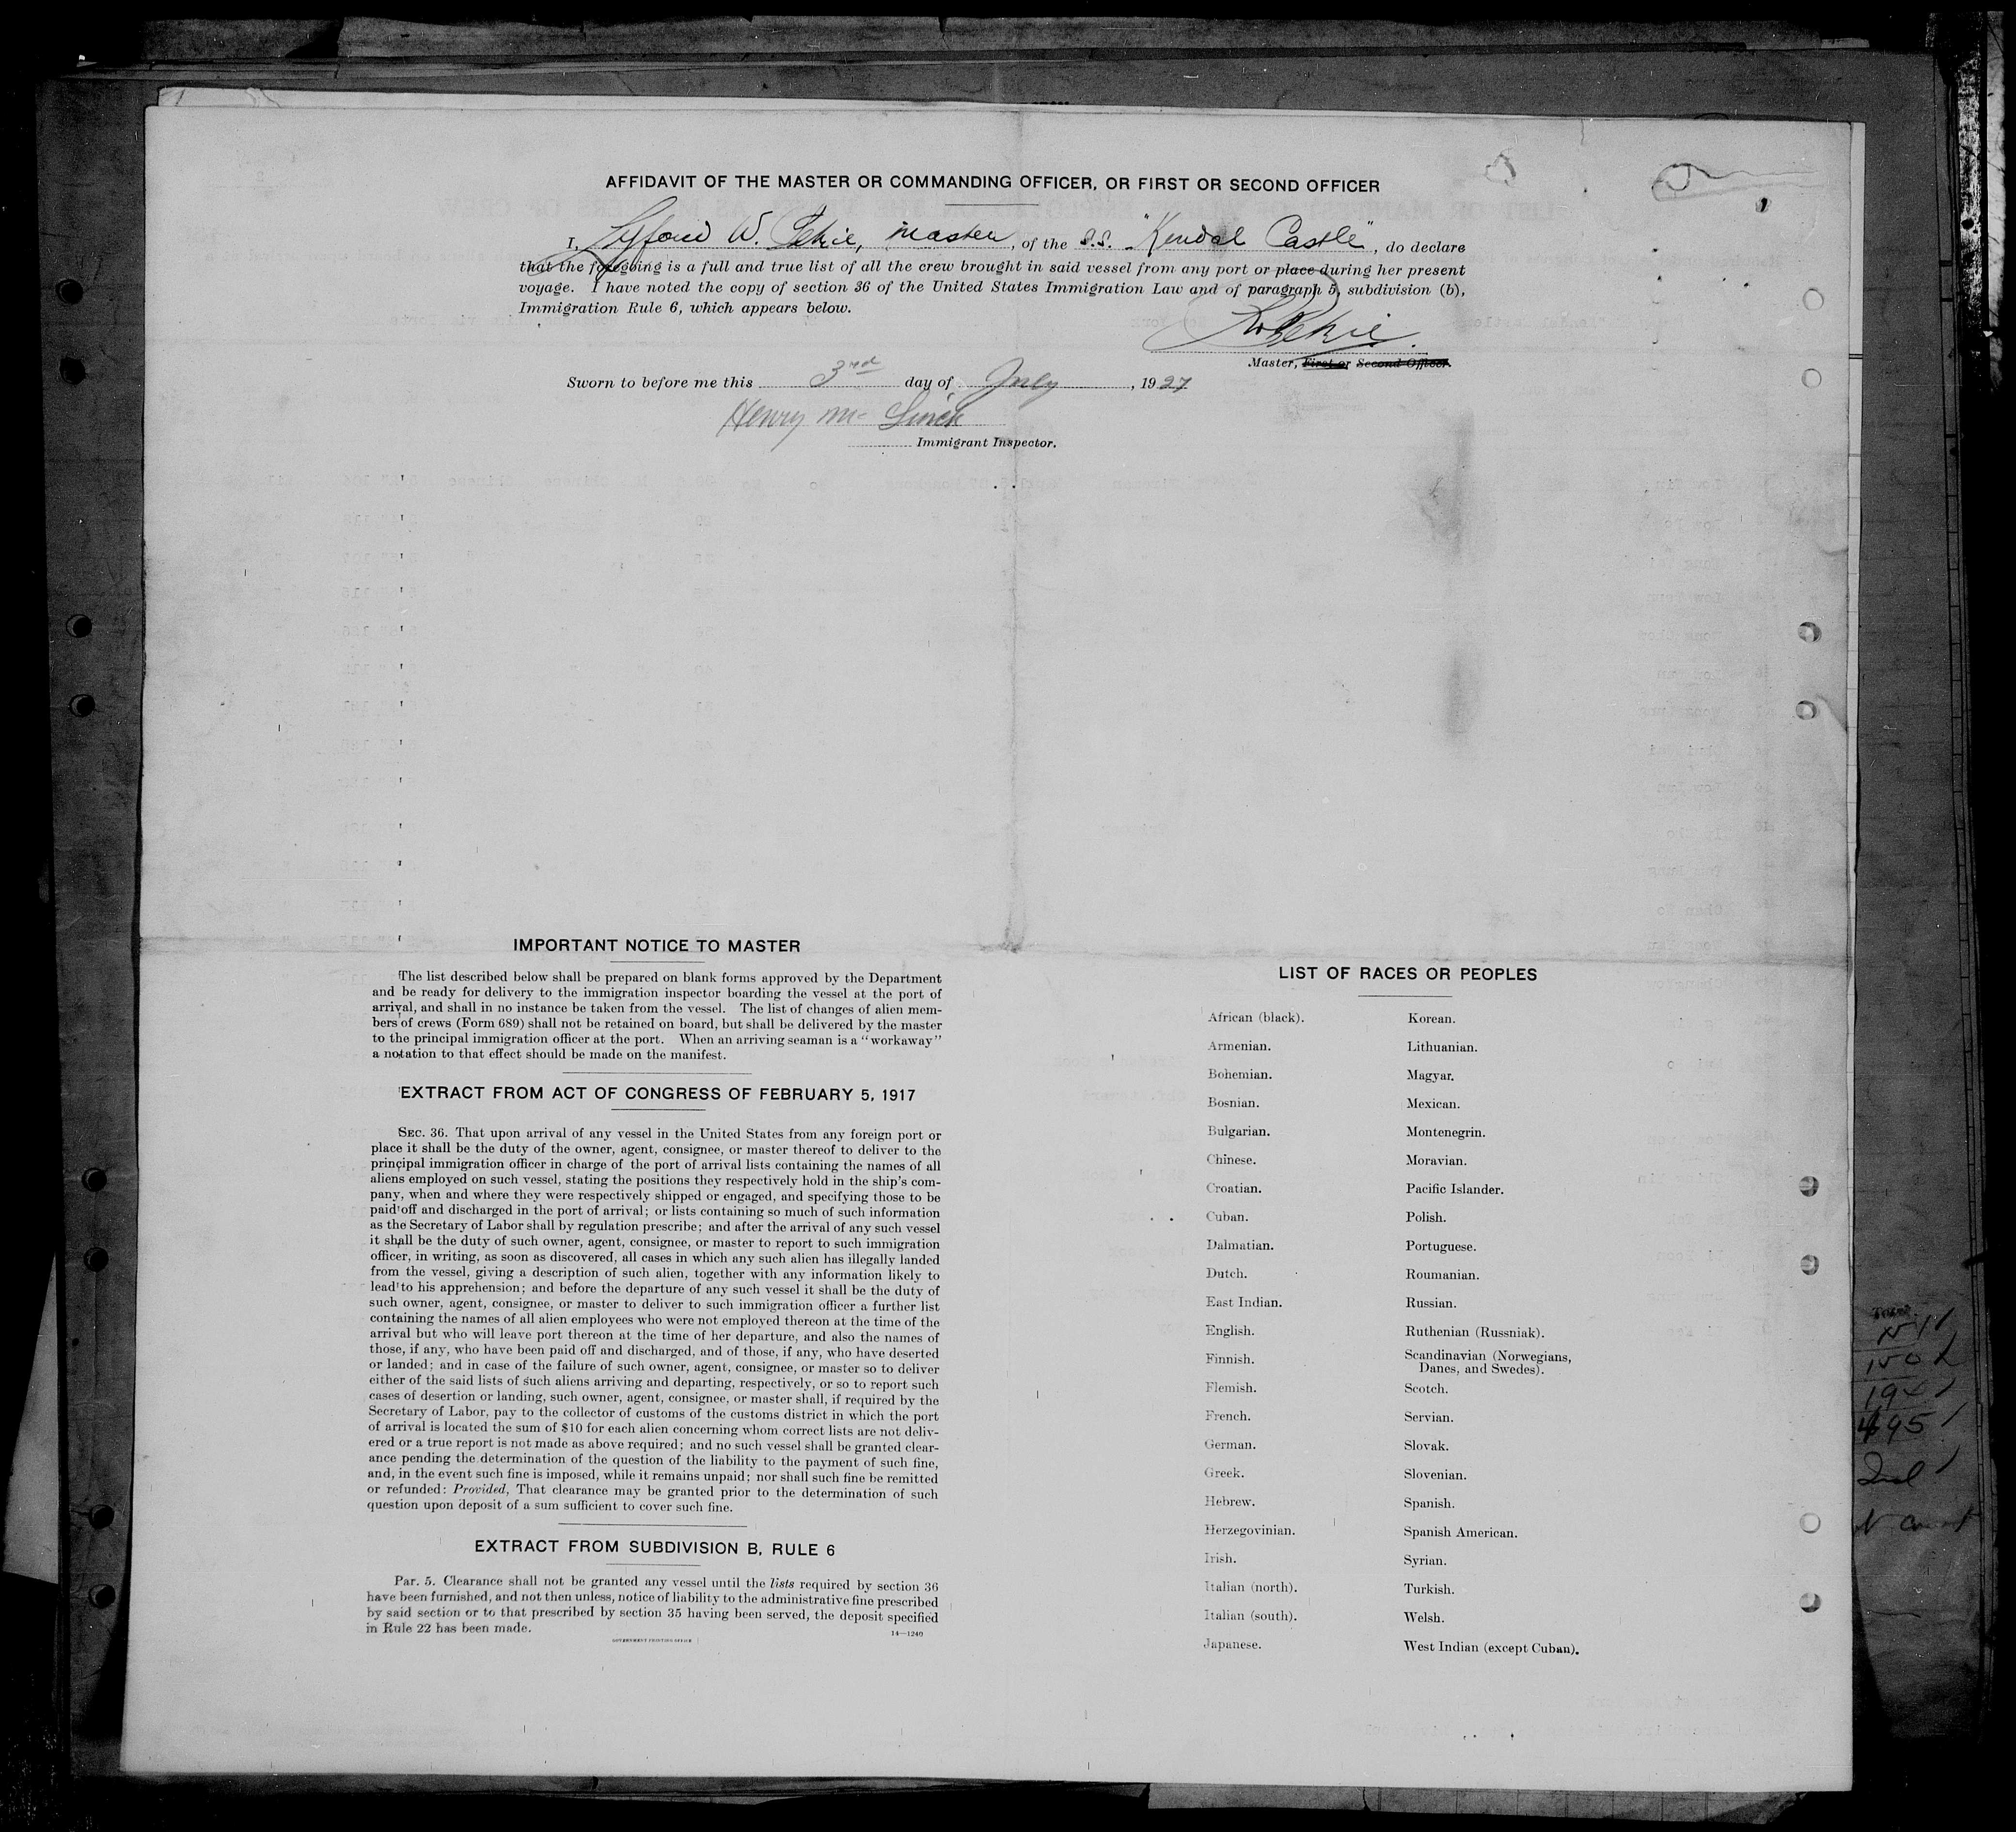 AFFIDAVIT OF THE MASTER OR COMMANDING OFFICER, OR FIRST OR SECOND OFFICER
I, W. Master, of the S.S. "Kendal Castle", do declare
that the foregoing is a full and true list of all the crew brought in said vessel from any port or place during her present
voyage. I have noted the copy of section 36 of the United States Immigration Law and of paragraph 5, subdivision (b),
Immigration Rule 6, which appears below.
Master, First or Second Officer.
Sworn to before me this 3rd day of July, 1927
Henry Mc
Immigrant Inspector.
IMPORTANT NOTICE TO MASTER
The list described below shall be prepared on blank forms approved by the Department
and be ready for delivery to the immigration inspector boarding the vessel at the port of
arrival, and shall in no instance be taken from the vessel. The list of changes of alien mem-
bers of crews (Form 689) shall not be retained on board, but shall be delivered by the master
to the principal immigration officer at the port. When an arriving seaman is a "workaway"
a notation to that effect should be made on the manifest.
EXTRACT FROM ACT OF CONGRESS OF FEBRUARY 5, 1917
SEC. 36. That upon arrival of any vessel in the United States from any foreign port or
place it shall be the duty of the owner, agent, consignee, or master thereof to deliver to the
principal immigration officer in charge of the port of arrival lists containing the names of all
aliens employed on such vessel, stating the positions they respectively hold in the ship's com-
pany, when and where they were respectively shipped or engaged, and specifying those to be
paid off and discharged in the port of arrival; or lists containing so much of such information
as the Secretary of Labor shall by regulation prescribe; and after the arrival of any such vessel
it shall be the duty of such owner, agent, consignee, or master to report to such immigration
officer, in writing, as soon as discovered, all cases in which any such alien has illegally landed
from the vessel, giving a description of such alien, together with any information likely to
lead to his apprehension; and before the departure of any such vessel it shall be the duty of
such owner, agent, consignee, or master to deliver to such immigration officer a further list
containing the names of all alien employees who were not employed thereon at the time of the
arrival but who will leave port thereon at the time of her departure, and also the names of
those, if any, who have been paid off and discharged, and of those, if any, who have deserted
or landed; and in case of the failure of such owner, agent, consignee, or master so to deliver
either of the said lists of such aliens arriving and departing, respectively, or so to report such
cases of desertion or landing, such owner, agent, consignee, or master shall, if required by the
Secretary of Labor, pay to the collector of customs of the customs district in which the port
of arrival is located the sum of $10 for each alien concerning whom correct lists are not deliv-
ered or a true report is not made as above required; and no such vessel shall be granted clear-
ance pending the determination of the question of the liability to the payment of such fine,
and, in the event such fine is imposed, while it remains unpaid; nor shall such fine be remitted
or refunded: Provided, That clearance may be granted prior to the determination of such
question upon deposit of a sum sufficient to cover such fine.
EXTRACT FROM SUBDIVISION B, RULE 6
Par. 5. Clearance shall not be granted any vessel until the lists required by section 36
have been furnished, and not then unless, notice of liability to the administrative fine prescribed
by said section or to that prescribed by section 35 having been served, the deposit specified
in Rule 22 has been made.
14—1240
GOVERNMENT PRINTING OFFICE
LIST OF RACES OR PEOPLES
African (black).
Armenian.
Bohemian.
Bosnian.
Bulgarian.
Chinese.
Croatian.
Cuban.
Dalmatian.
Dutch.
East Indian.
English.
Finnish.
Flemish.
French.
German.
Greek.
Hebrew.
Herzegovinian.
Irish.
Italian (north).
Italian (south).
Japanese.
Korean.
Lithuanian.
Magyar.
Mexican.
Montenegrin.
Moravian.
Pacific Islander.
Polish.
Portuguese.
Roumanian.
Russian.
Ruthenian (Russniak).
Scandinavian (Norwegians,
Danes, and Swedes).
Scotch.
Servian.
Slovak.
Slovenian.
Spanish.
Spanish American.
Syrian.
Turkish.
Welsh.
West Indian (except Cuban).